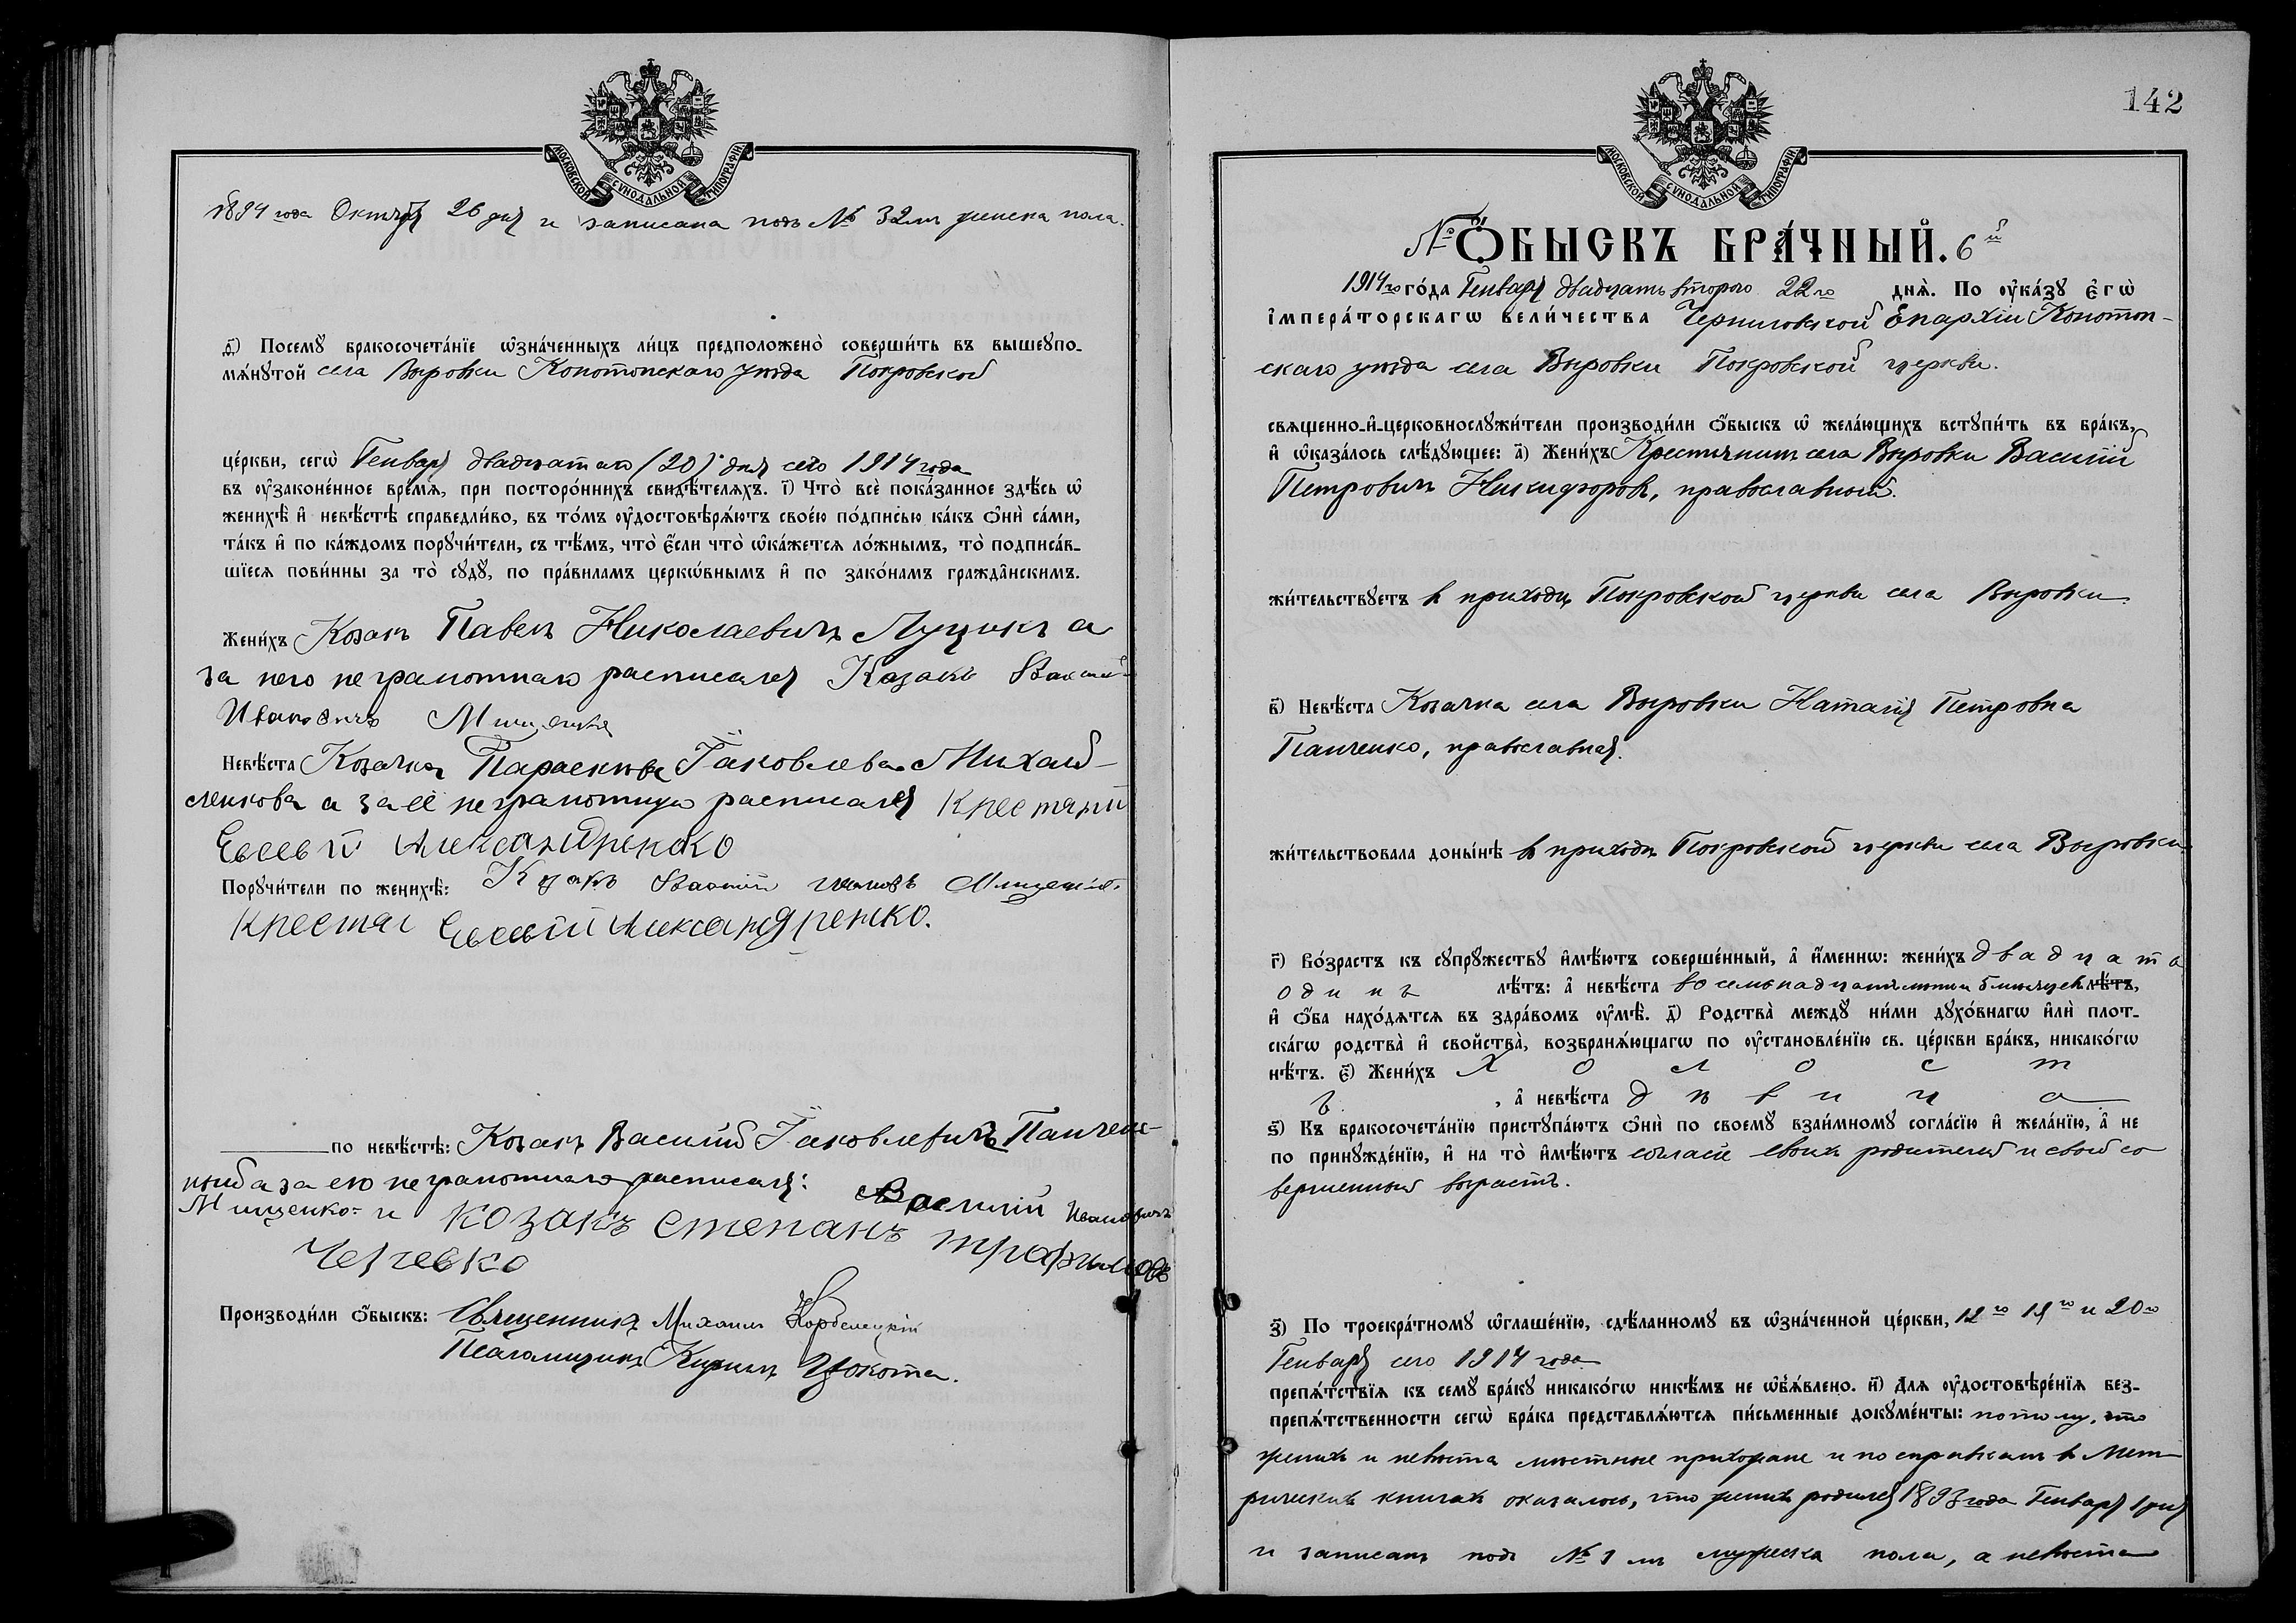 МОСКОВСКОЙ СѴНОДАЛЬНОЙ ТИПОГРАФІИ
1894 года Октября 26 дня и записана подъ № 32мъ женска пола.
д҃) Посемꙋ̀ бракосочета́нїе ѡ҆зна́ченныхъ ли́цъ предположено̀ соверши́ть въ вышеꙋпо-
мѧ́нꙋтой села Вировки Конотопскаго уѣзда Покровской
це́ркви, сегѡ̀ Генваря двадцатаго (20) дня сего 1914 года
въ ᲂу҆законе́нное вре́мѧ, при посторо́ннихъ свидѣ́телѧхъ. і҃) Что̀ всѐ пока́занное здѣ́сь ѡ҆
женихѣ̀ и҆ невѣ́стѣ справедли́во, въ то́мъ ᲂу҆достовѣрѧ́ютъ свое́ю по́дписью ка́къ ѻ҆нѝ са́ми,
та́къ и҆ по ка́ждомъ порꙋчи́тели, съ тѣ́мъ, что̀ є҆́сли что̀ ѡ҆ка́жетсѧ ло́жнымъ, то̀ подписа́в-
шїесѧ пови́нны за то̀ сꙋдꙋ̀, по пра́виламъ церкѡ́внымъ и҆ по зако́намъ гражда̂нскимъ.
Жени́хъ Козакъ Павелъ Николаевичъ Луцикъ а
за него неграмотнаго расписался Казакъ Василій
Ивановичъ Мищенко
Невѣ́ста Козачка Параскева Іаковлева Михай-
ленкова а за её неграмотную расписался Крестянин
Евсевий Александренко
Порꙋчи́тели по женихѣ̀: Казакъ Василий Ивановъ Мищенко.
Крестян Евсевий Александренко.
по невѣ́стѣ: Козакъ Василий Іаковлевичъ Панчен-
ный а за его неграмотнаго расписался: Василий Ивановичъ
Мищенко и козакъ степанъ трафимовъ
Производи́ли ѻ҆́быскъ: Священникъ Михаилъ
Псаломщикъ Кириллъ Цокота.
142
МОСКОВСКОЙ СѴНОДАЛЬНОЙ ТИПОГРАФІИ
№ Ѻ҆́БЫСКЪ БРА́ЧНЫЙ. 6й
1914го го́да Генваря двадцать второго 22го днѧ̀. По ᲂу҆ка́зꙋ є҆гѡ̀
і҆мпера́торскагѡ вели́чества Черниговской Епархіи Конотоп-
скаго уѣзда села Вировки Покровской церкви.
свѧщенно-и҆-церковнослꙋжи́тели производи́ли ѻ҆́быскъ ѡ҆ жела́ющихъ встꙋпи́ть въ бра́къ,
и҆ ѡ҆каза́лось слѣ́дꙋющее: а҃) Жени́хъ Крестьянинъ села Вировки Василій
Петровичъ Никифоровъ, православный.
жи́тельствꙋетъ въ приходѣ Покровской церкви села Вировки.
в҃) Невѣ́ста Козачка села Вировки Наталія Петровна
Панченко, православная.
жи́тельствовала доны́нѣ въ приходѣ Покровской церкви села Вировки
г҃) Во́зрастъ къ сꙋпрꙋ́жествꙋ и҆мѣ́ютъ соверше́нный, а҆ и҆́меннѡ: жени́хъ двадцать
одинъ лѣ́тъ: а҆ невѣ́ста восемьнадцать лѣтъ лѣ́тъ,
и҆ ѻ҆́ба нахо́дѧтсѧ въ здра́вомъ ᲂу҆мѣ̀. д҃) Родства̀ междꙋ̀ ни́ми дꙋхо́внагѡ и҆лѝ плот-
ска́гѡ родства̀ и҆ свойства̀, возбранѧ́ющагѡ по ᲂу҆становле́нїю св. це́ркви бра́къ, никако́гѡ
нѣ́тъ. є҃) Жени́хъ Холост
ъ, а҆ невѣ́ста дѣвица
ѕ҃) Къ бракосочета́нїю пристꙋпа́ютъ ѻ҆нѝ по своемꙋ̀ взаи́мномꙋ согла́сїю и҆ жела́нїю, а҆ не
по принꙋжде́нїю, и҆ на то̀ и҆мѣ́ютъ согласіе своихъ родителей и свой со
вершенный возрастъ.
з҃) По троекра́тномꙋ ѡ҆глаше́нїю, сдѣ́ланномꙋ въ ѡ҆зна́ченной це́ркви, 12го 19го и 20го
Генваря сего 1914 года
препѧ́тствїѧ къ семꙋ̀ бра́кꙋ никако́гѡ никѣ́мъ не ѡ҆б̾ѧ́влено. и҃) Длѧ ᲂу҆достовѣре́нїѧ без-
препѧ́тственности сегѡ̀ бра́ка представлѧ́ютсѧ пи́сьменные докꙋме́нты: потому, что
женихъ и невѣста мѣстные прихожане и по справкамъ въ Мет-
рическихъ книгахъ оказалось, что женихъ родился 1893 года Генваря 1 дня
и записанъ подъ № 1 мъ мужеска пола, а невѣста